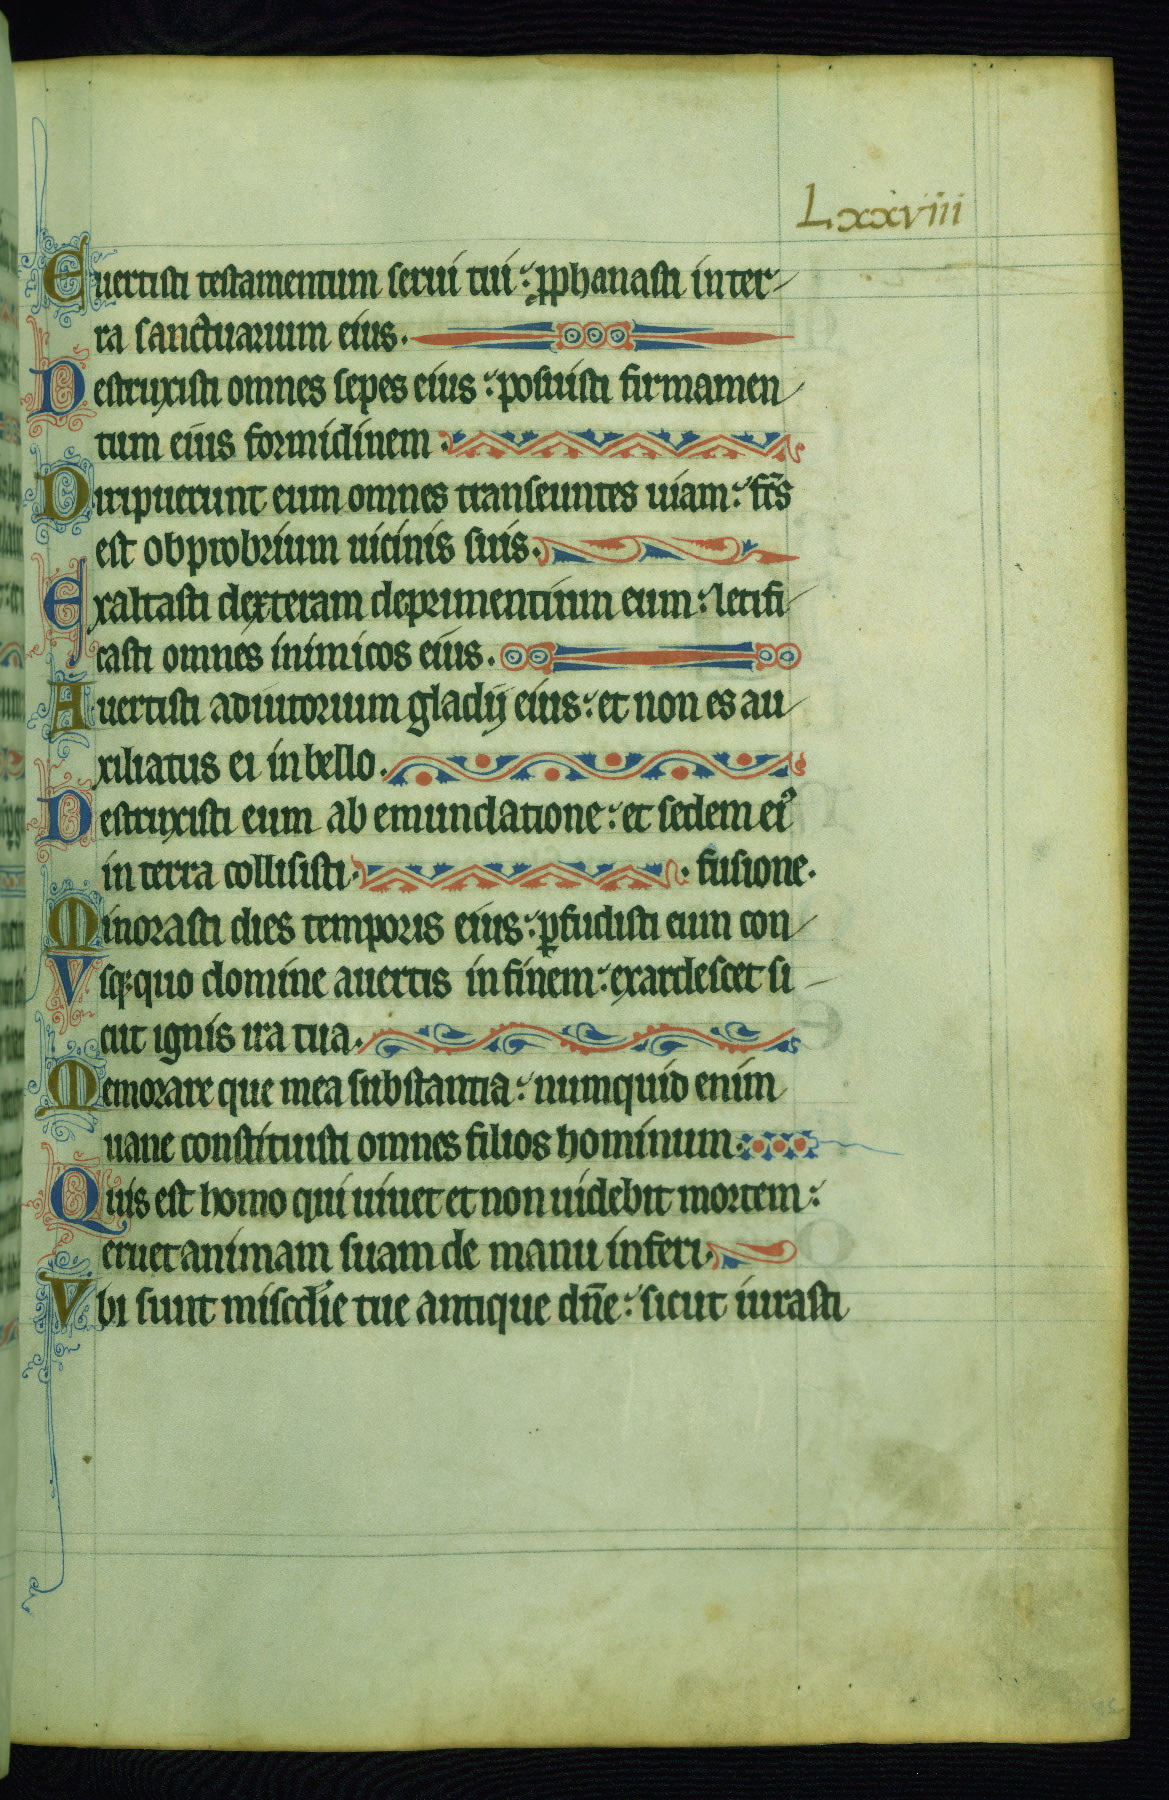 Lxxviii
Euertisti testamentum serui tui: ꝓphanasti in ter-
ra sanctuarium eius.
Destruxisti omnes sepes eius: posuisti firmamen
tum eius formidinem.
Diripuerunt eum omnes transeuntes uiam: fc̄s
est obprobrium uicinis suis.
Exaltasti dexteram deprimentium eum: letifi
casti omnes inimicos eius.
Auertisti adiutorium gladij eius: et non es au
xiliatus ei in bello.
Destruxisti eum ab emundatione: et sedem eiꝰ
in terra collisisti. fusione.
Minorasti dies temporis eius: ꝑfudisti eum con
Vsqꝫ quo domine auertis in finem: exardescet si
cut ignis ira tua.
Memorare que mea substantia: numquid enim
uane constituisti omnes filios hominum.
Quis est homo qui uiuet et non uidebit mortem:
eruet animam suam de manu inferi.
Vbi sunt miscd̓ie tue antique dn̄e: sicut iurasti